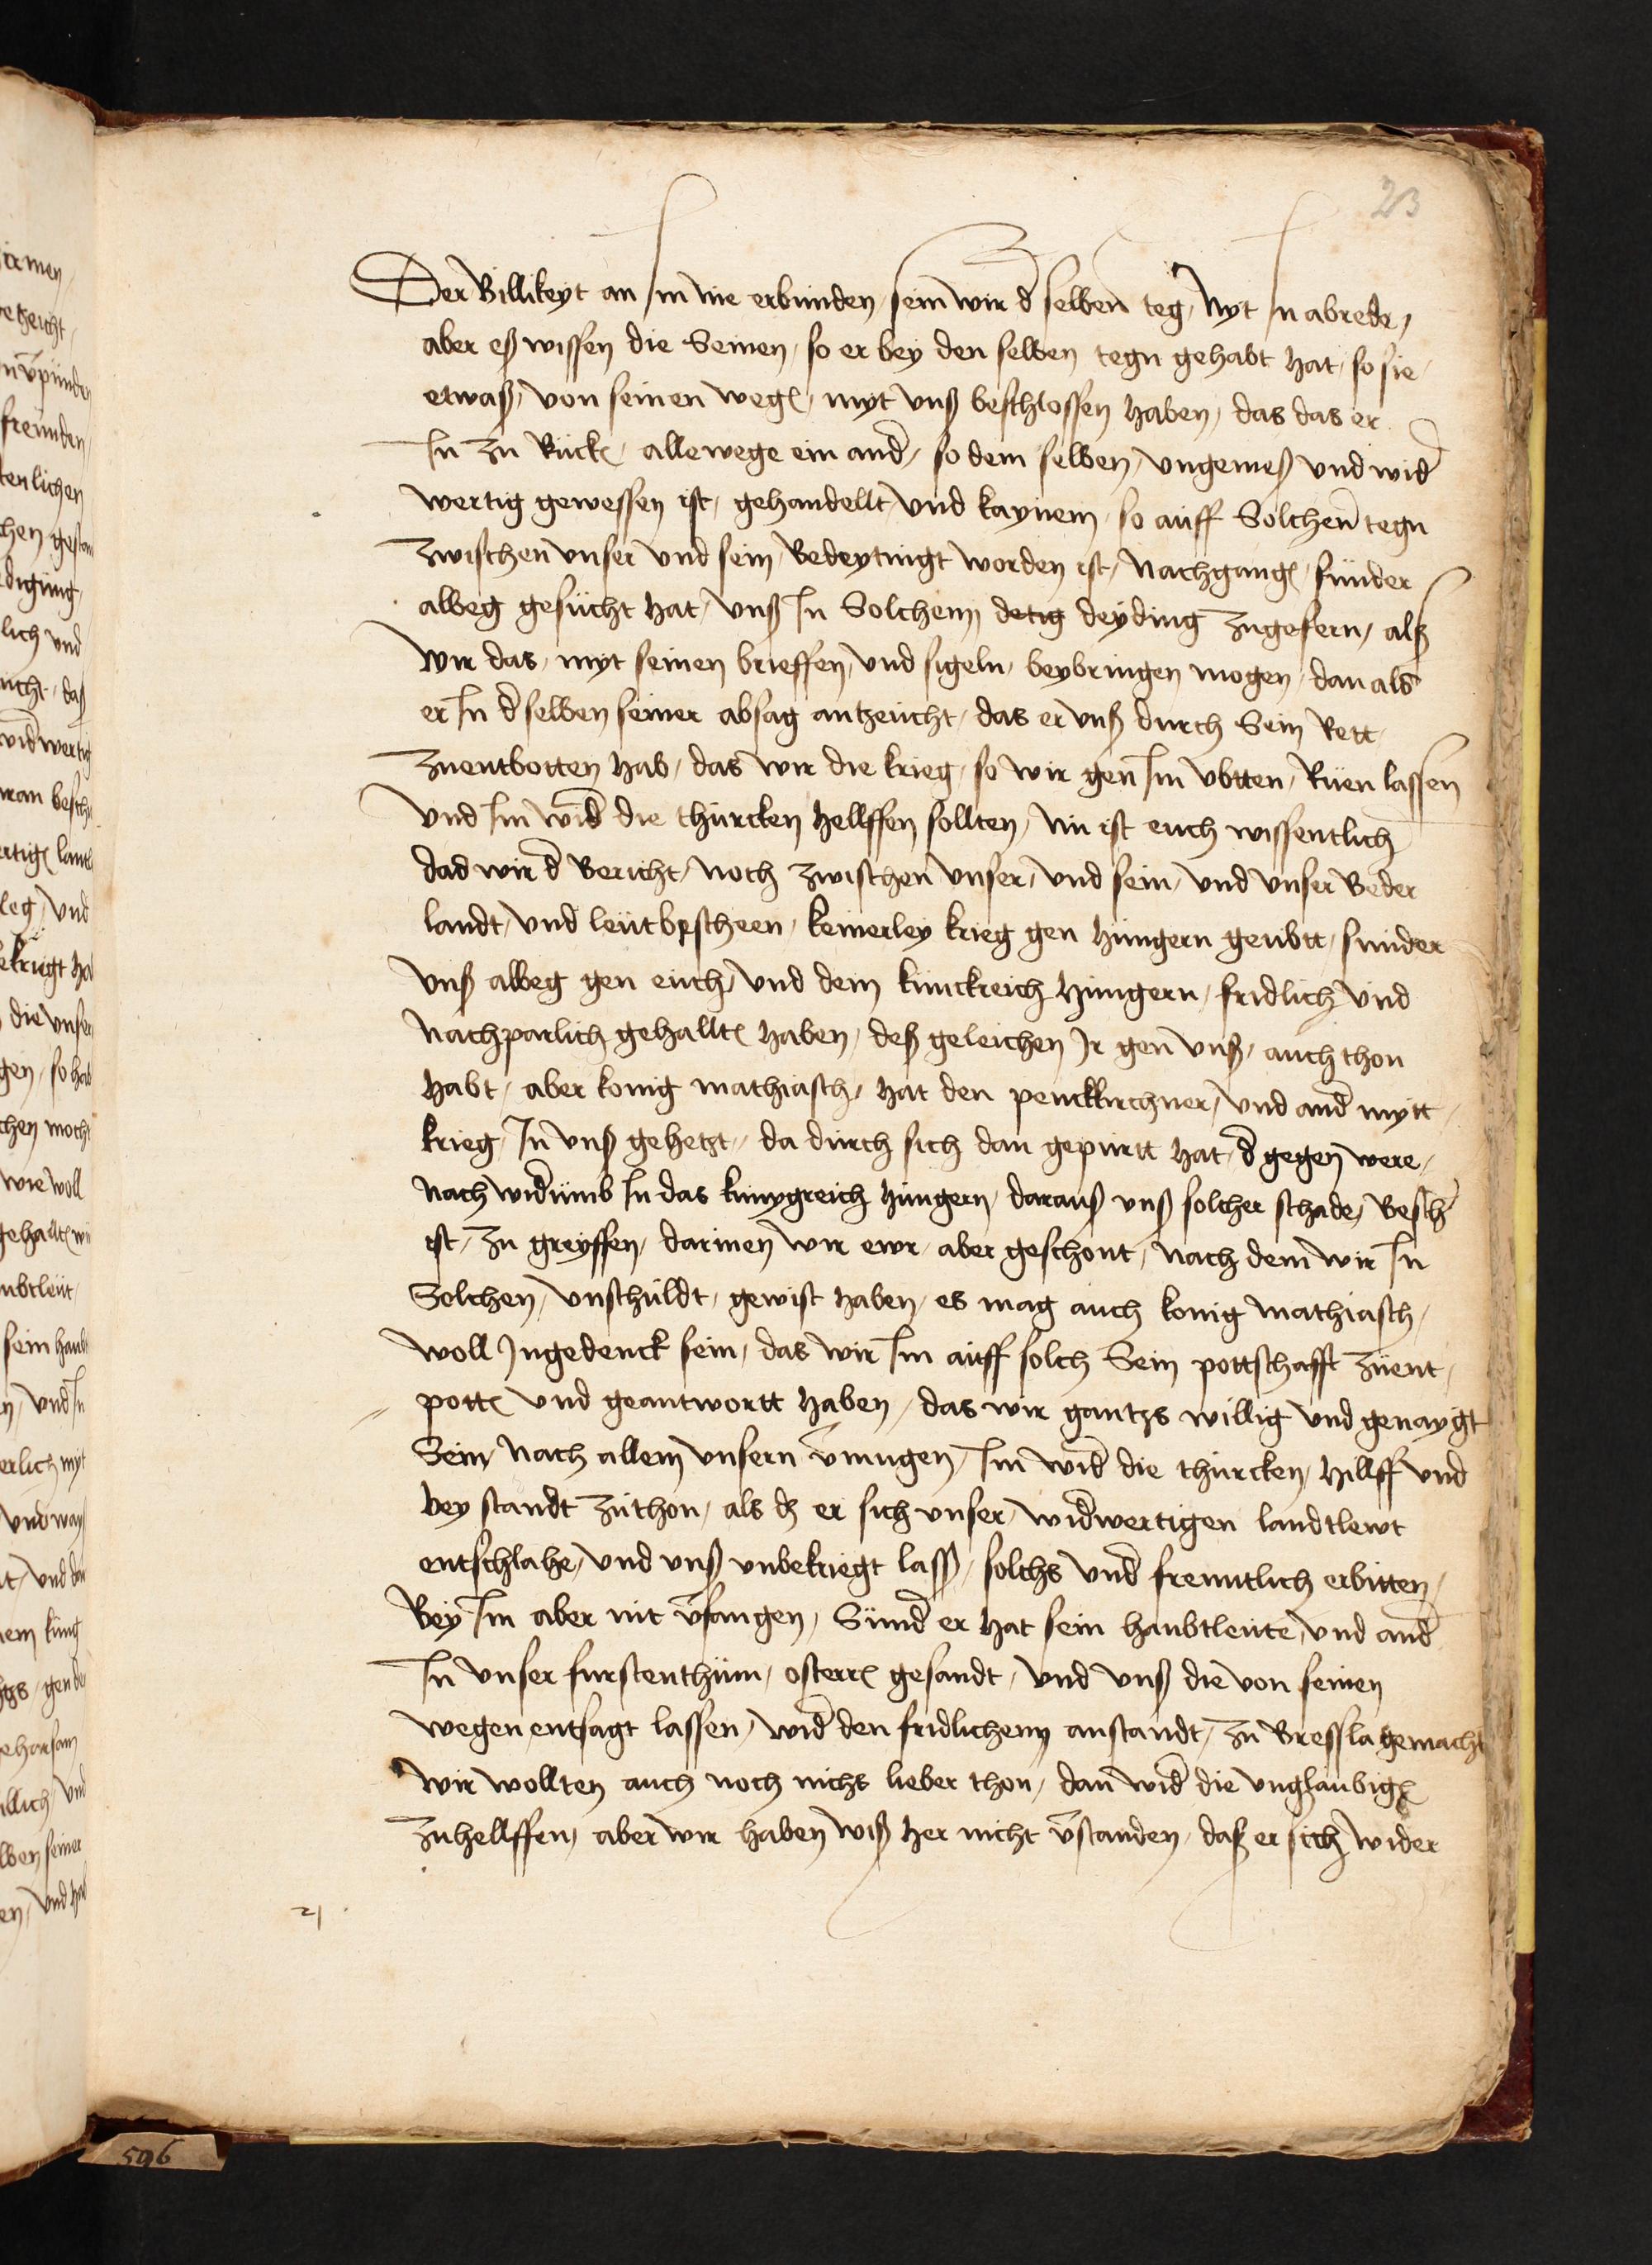 23
Der Billikeyt an Im nie erbunden, sein wir d selben teg, Nyt In abrede,
aber eß wissen die Seinen, so er bey den selben tegn gehabt hat, so sie,
etwaß, von seinen weg, myt vnß beschlossen haben, das das er
In zu Ruck, allewege ein and, so dem selben, vngemeß vnd wid
wertig gewessen ist, gehandellt vnd kaynem, so auff Solchen tegn
zwischen vnser vnd sein, Bedeytingt worden ist, Nachgang, sunder
alweg gesucht hat, vnß In Solchem detig deyding zugefern, alß
wir das, myt seinen brieffen, vnd sigeln, beybringen mogen, dan als
er In d selben seiner absag antzeucht, das er vnß durch Sein Rett,
zuentbotten hab, das wir die krieg, so wir gen Im vbtten, Ruen lassen
vnd Im wid die thurcken hellffen sollten, Nu ist euch wissentlich
dad wir d Bericht, Noch zwischen vnser, vnd sein, vnd vnser Beder
landt, vnd leut bescheen, keinerley krieg gen hungern geubtt, sunder
vnß alweg gen euch, vnd dem kunckreich hungern, fridlich vnd
Nachparlich gehallt haben, deß geleichen Jr gen vnß, auch thon
habt, aber konig mathiasch, hat den penckkirchner, vnd and mytt,
krieg, In vnß gehetzt, da durch sich dan gepurtt hat, d gegen were,
Nach widumb In das kunygreich hungern, darauß vnß solcher schade, Besch
ist, zu greyffen, darinen wir ewr, aber geschont, Nach dem wir In
Solchen, vnschuldt, gewist haben, es mag auch konig mathiasch,
woll Jngedenck sein, das wir Im auff solch Sein pottschafft zuent,
pott vnd geantwortt haben, das wir gantzs willig vnd genaygt
Sein, Nach allem vnsern vmugen, Im wid die thurcken, hillff vnd
bey standt zuthon, als dz er sich vnser, widwertigen landtlewt
entschlahe, vnd vnß vnbekriegt lass, solchs vnd freuntlich erbitten,
Bey Im aber nit vfangen, Sund er hat sein haubtleute, vnd and
In vnser furstenthum, osterr gesandt, vnd vnß die von seinen
wegen, entsagt lassen, wid den fridlichenn anstandt, zu Bressla gemacht
wir wollten auch noch nichs lieber thon, dan wid die vnglaubig
zuhellffen, aber wir haben wiß her nicht vstanden, daß er sich wider
596